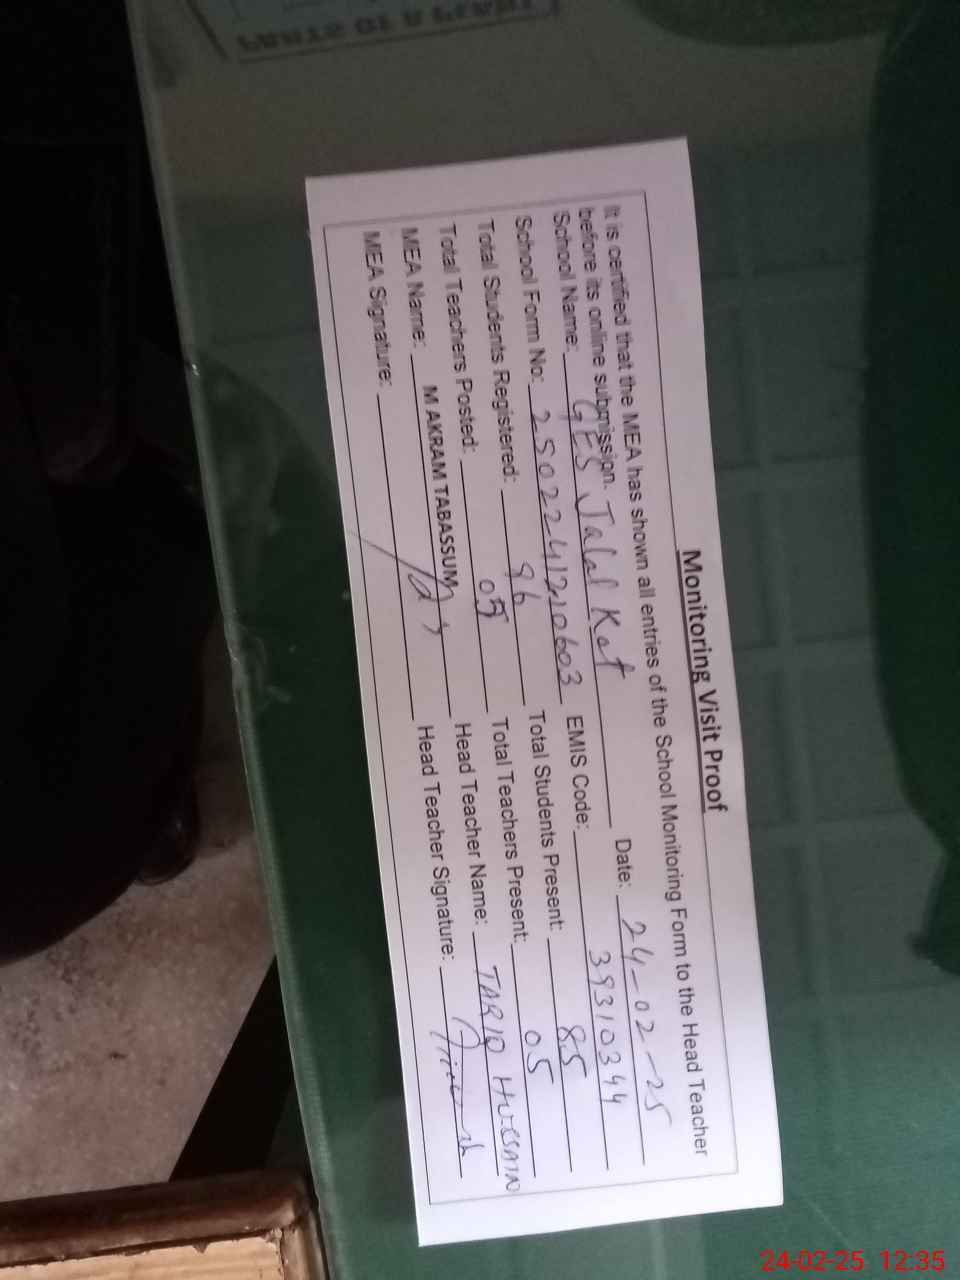 Monitoring Visit Proof
It is certified that the MEA has shown all entries of the School Monitoring Form to the Head Teacher
before its online submission.
School Name: GES Jalal Kot Date: 24-02-25
School Form No: 25022412210603 EMIS Code: 39310344
Total Students Registered: 96 Total Students Present: 85
Total Teachers Posted: 05 Total Teachers Present: 05
MEA Name: M AKRAM TABASSUM Head Teacher Name: TARIQ HUSSAIN
MEA Signature: Head Teacher Signature:
24-02-25 12:35